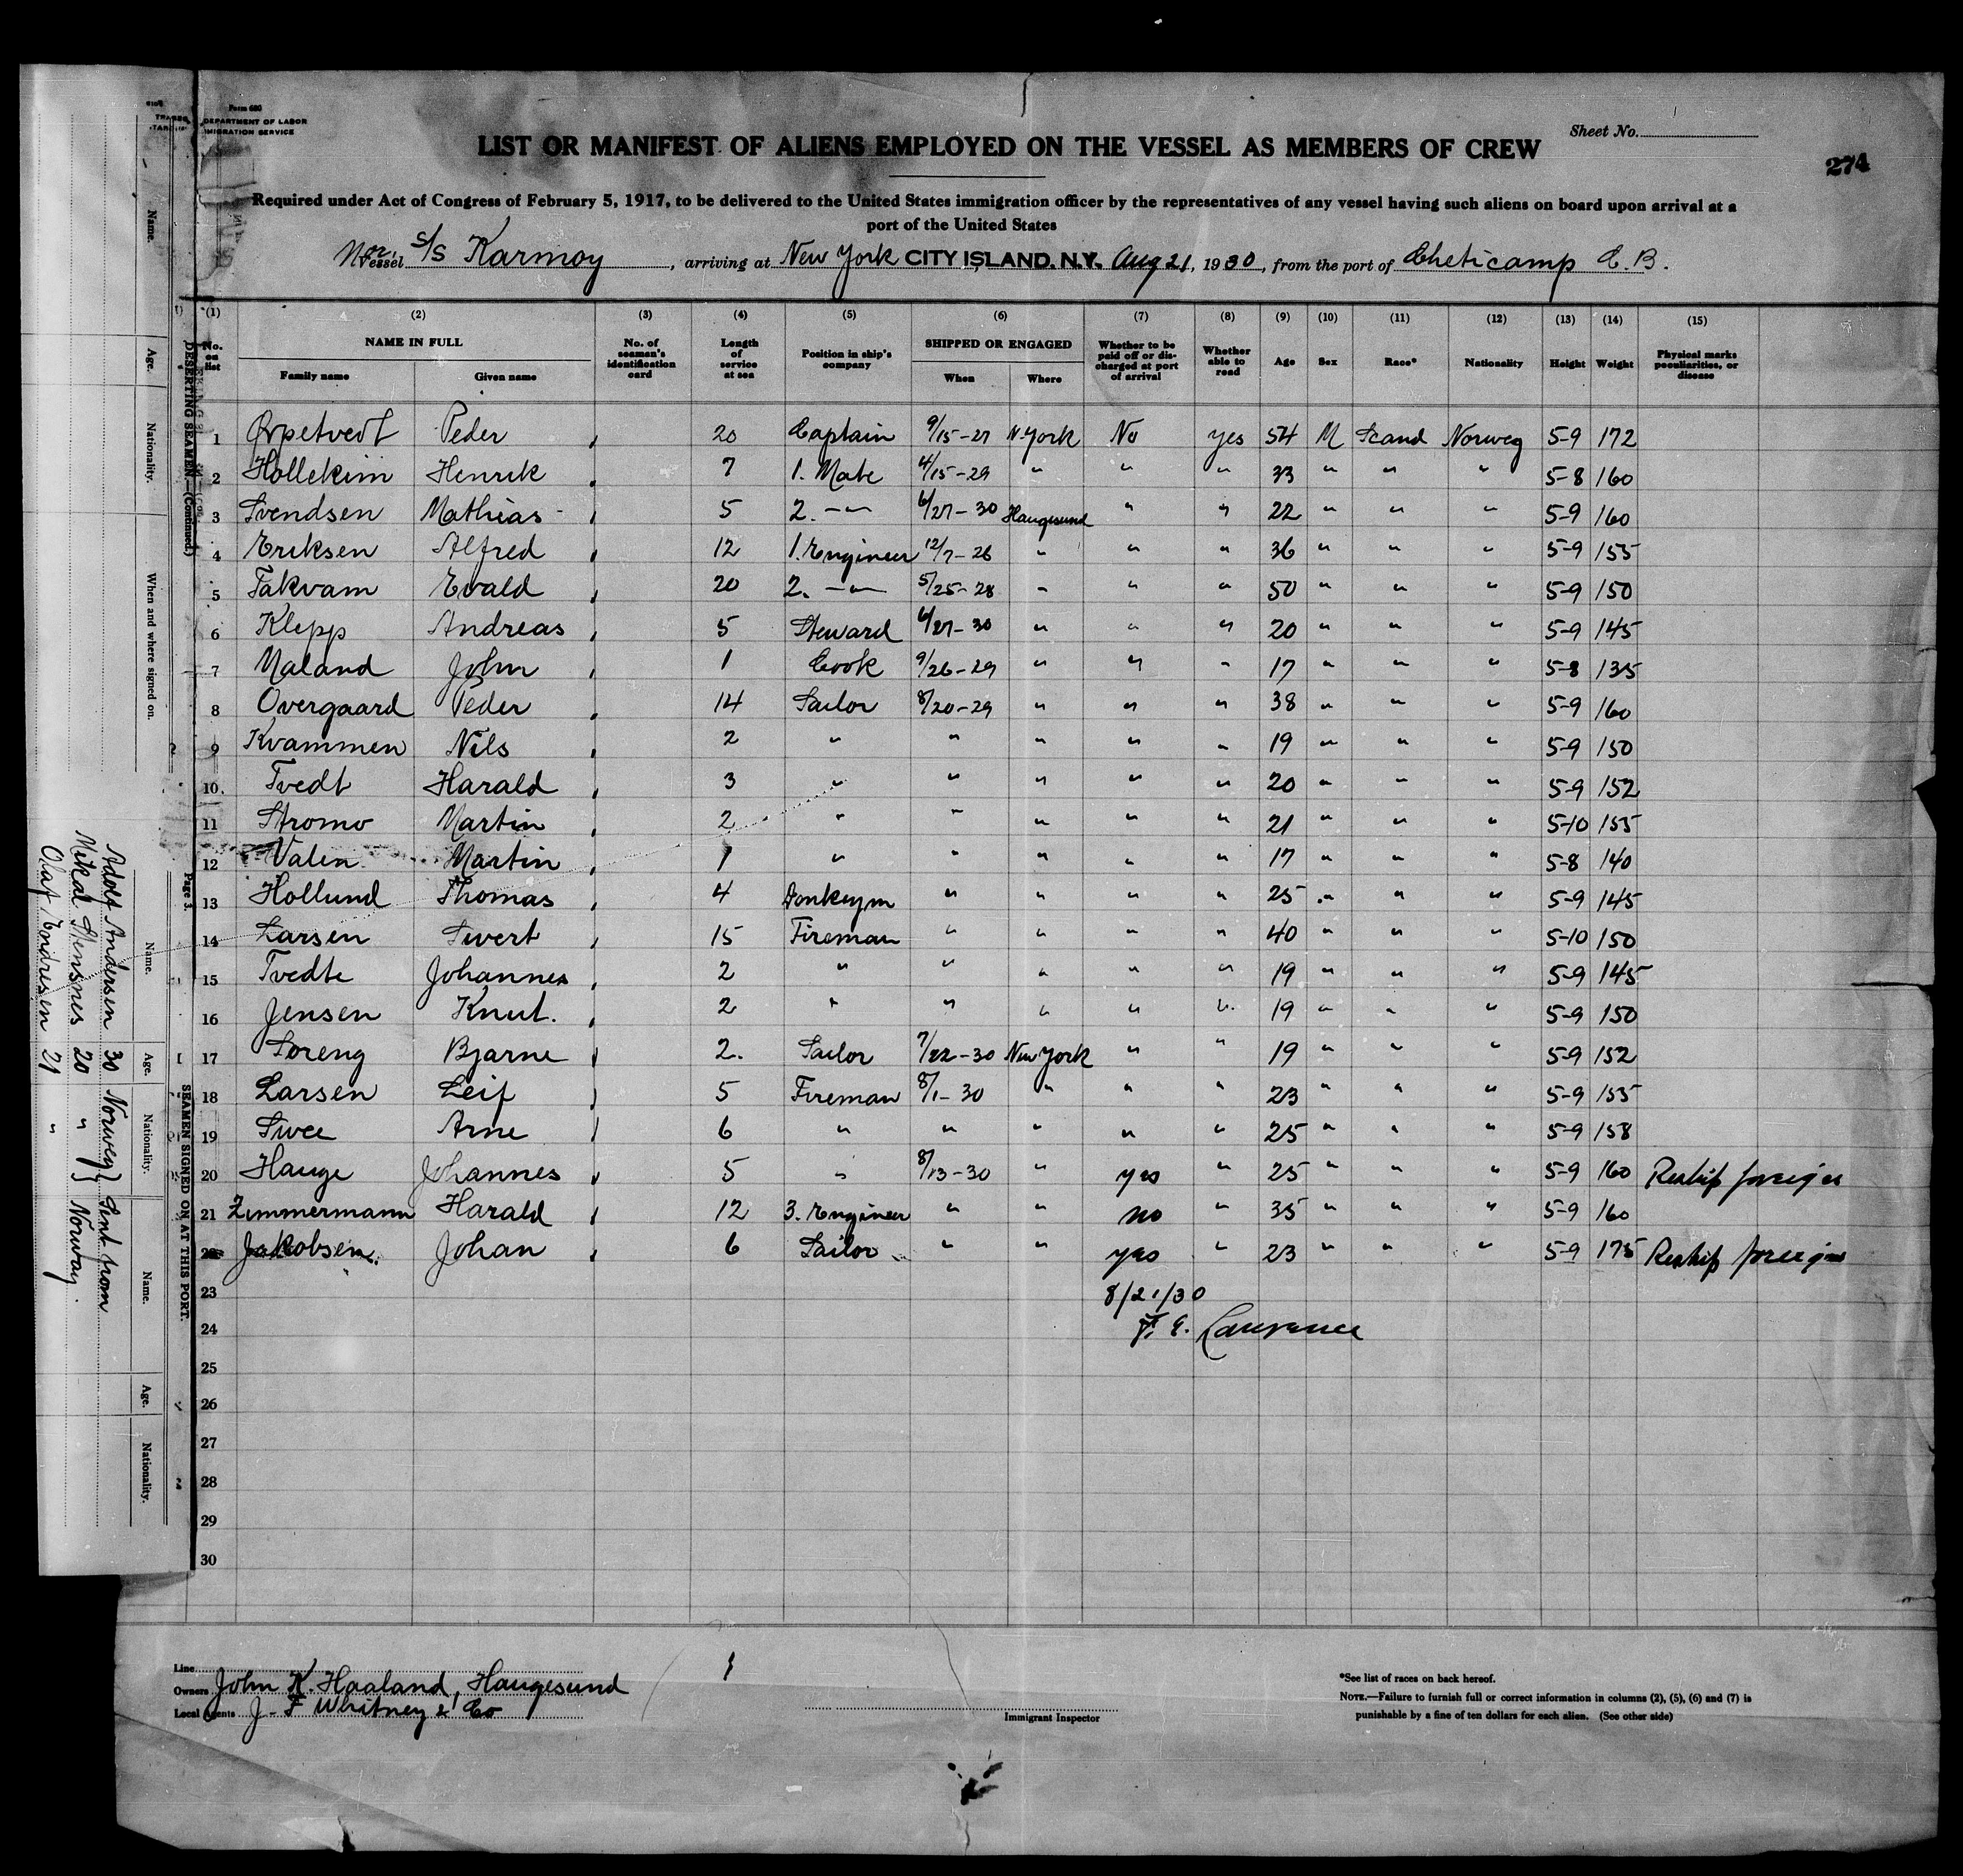 Form 680
DEPARTMENT OF LABOR
IMIGRATION SERVICE
Sheet No.
LIST OR MANIFEST OF ALIENS EMPLOYED ON THE VESSEL AS MEMBERS OF CREW
274
Required under Act of Congress of February 5, 1917, to be delivered to the United States immigration officer by the representatives of any vessel having such aliens on board upon arrival at a
port of the United States
Nor. Vessel S/S Karmoy, arriving at New York CITY ISLAND. N.Y. Aug 21, 1930, from the port of Cheticamp C.B.
(1) (2) (3) (4) (5) (6) (7) (8) (9) (10) (11) (12) (13) (14) (15)
No. on list NAME IN FULL Family name Given name No. of seaman's identification card Length of service at sea Position in ship's company SHIPPED OR ENGAGED When Where Whether to be paid off or discharged at port of arrival Whether able to read Age Sex Race* Nationality Height Weight Physical marks peculiarities, or disease
1 Peder 20 Captain 9/15-27 N-York No yes 54 M Scand Norweg 5-9 172
2 Hollekim Henrik 7 1. Mate 4/15-29 " " " 33 " " " 5-8 160
3 Svendsen Mathias 5 2. -"- 6/27-30 Haugesund " " 22 " " " 5-9 160
4 Eriksen Alfred 12 1. Engineer 12/7-26 " " " 36 " " " 5-9 155
5 Takvam Evald 20 2. -"- 5/25-28 " " " 50 " " " 5-9 150
6 Klepp Andreas 5 Steward 6/27-30 " " " 20 " " " 5-9 145
7 Maland John 1 Cook 9/26-29 " " " 17 " " " 5-8 135
8 Overgaard Peder 14 Sailor 8/20-29 " " " 38 " " " 5-9 160
9 Kvammen Nils 2 " " " " " 19 " " " 5-9 150
10 Tvedt Harald 3 " " " " " 20 " " " 5-9 152
11 Stromo Martin 2 " " " " " 21 " " " 5-10 155
12 Valen Martin 1 " " " " " 17 " " " 5-8 140
13 Hollund Thomas 4 Donkeym " " " " 25 " " " 5-9 145
14 Larsen Sivert 15 Fireman " " " " 40 " " " 5-10 150
15 Tvedte Johannes 2 " " " " " 19 " " " 5-9 145
16 Jensen Knut. 2 " " " " " 19 " " " 5-9 150
17 Soreng Bjarne 2. Sailor 7/22-30 New York " " 19 " " " 5-9 152
18 Larsen Leif 5 Fireman 8/1-30 " " " 23 " " " 5-9 155
19 Arne 6 " " " " " 25 " " " 5-9 158
20 Hauge Johannes 5 " 8/13-30 " yes " 25 " " " 5-9 160 Reship foreign
21 Zimmermann Harald 12 3. Engineer " " no " 35 " " " 5-9 160
22 Jakobsen. Johan 6 Sailor " " yes " 23 " " " 5-9 175 Reship foreign
23 8/21/30
24
25
26
27
28
29
30
Line
Owners John K. Haaland, Haugesund
Local Agents J. F Whitney & Co
Immigrant Inspector
*See list of races on back hereof.
NOTE.—Failure to furnish full or correct information in columns (2), (5), (6) and (7) is
punishable by a fine of ten dollars for each alien. (See other side)
DESERTING SEAMEN.—(Continued.)
Name. Age. Nationality. When and where signed on.
Page 3.
SEAMEN SIGNED ON AT THIS PORT.
Name. Age. Nationality. Name. Age. Nationality.
Adolf Andersen 30 Norweg } Sent from
Mikal Stensnes 20 " } Norway.
Olaf Endresen 21 "